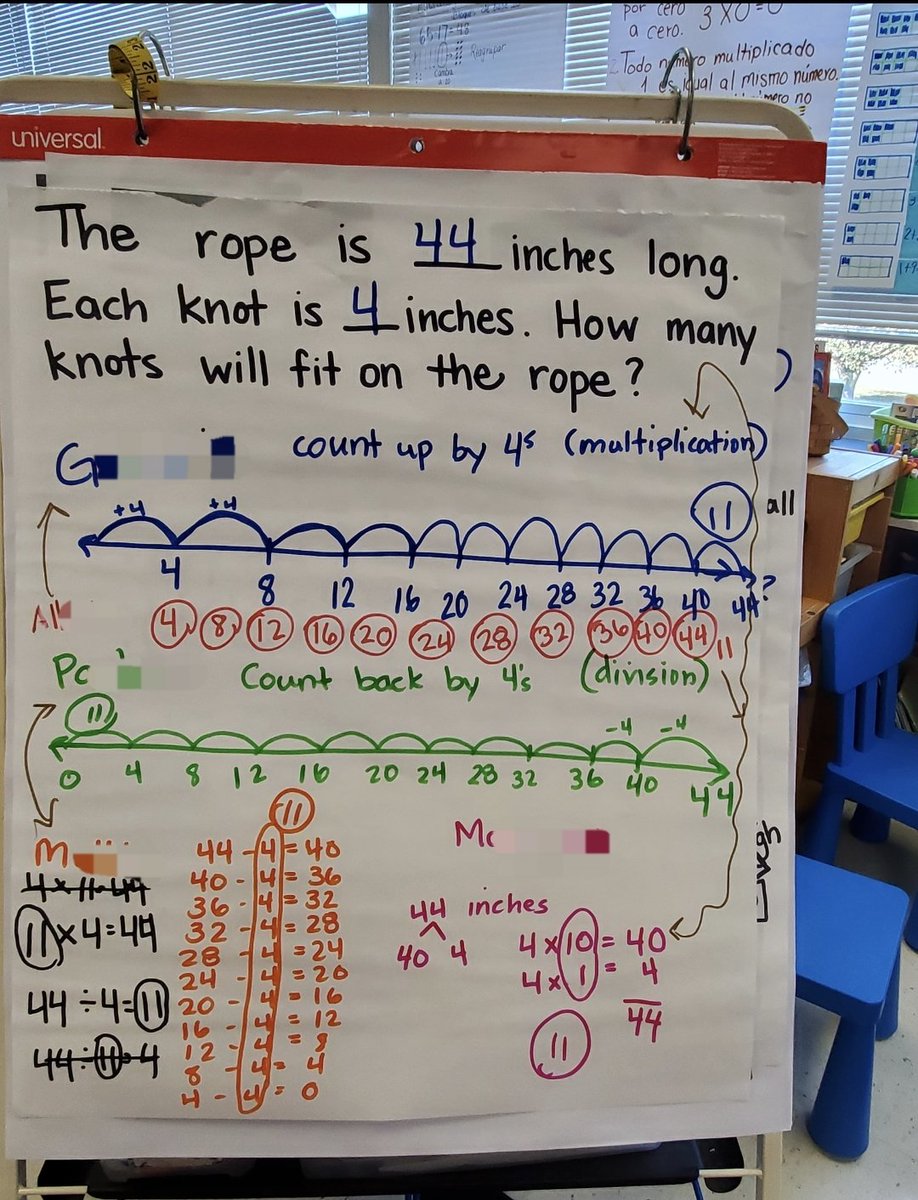 por cero 3 x 0 = 0
a cero.
Todo número multiplicado
1 es igual al mismo número.
no
Reagrupar
universal
The rope is 44 inches long.
Each knot is 4 inches. How many
knots will fit on the rope?
G
count up by 4s (multiplication)
+4 +4
11 all
4 8 12 16 20 24 28 32 36 40 44?
All
4, 8, 12 16 20 24 28 32 36 40 44 11
Pc
Count back by 4's (division)
11
-4 -4
0 4 8 12 16 20 24 28 32 36 40 44
M
4 x 11 = 44
11 x 4 = 44
44 ÷ 4 = 11
44 ÷ 11 = 4
11
44 - 4 = 40
40 - 4 = 36
36 - 4 = 32
32 - 4 = 28
28 - 4 = 24
24 - 4 = 20
20 - 4 = 16
16 - 4 = 12
12 - 4 = 8
8 - 4 = 4
4 - 4 = 0
Mc
44 inches
40 4
4 x 10 = 40
4 x 1 = 4
44
11